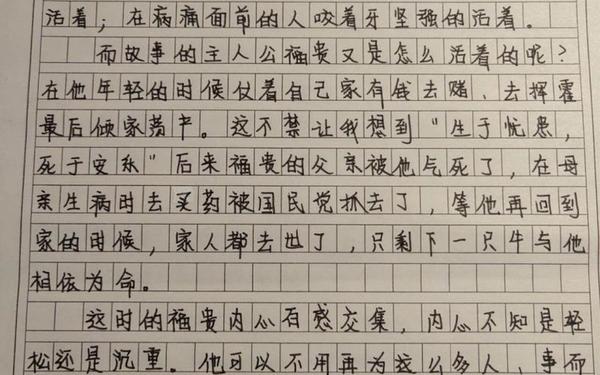 活着；在病痛面前的人咬着牙坚强的活着。
而故事的主人公福贵又是怎么活着的呢？
在他年轻的时候仗着自己家有钱去赌、去挥霍
最后倾家荡产。这不禁让我想到"生于忧患，
死于安乐"后来福贵的父亲被他气死了，在母
亲生病时去买药被国民党抓去了，等他再回到
家的时候，家人都去世了，只剩下一只牛与他
相依为命。
这时的福贵内心百感交集，内心不知是轻
松还是沉重。他可以不用再为这么多人，事而